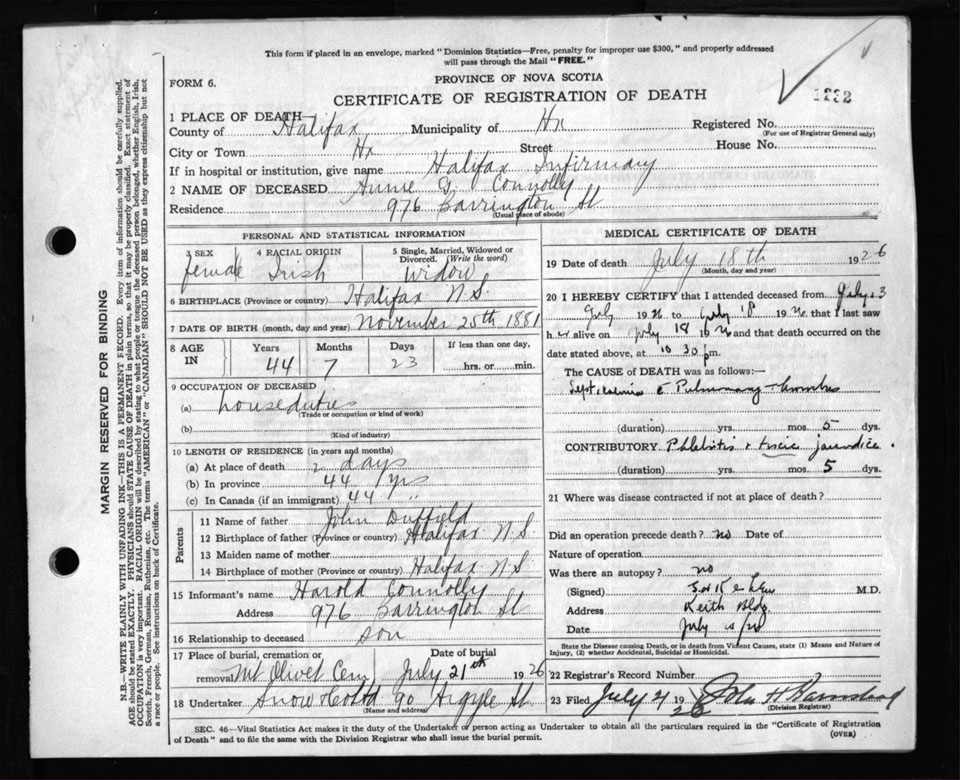 This form if placed in an envelope, marked "Dominion Statistics—Free, penalty for improper use $300," and properly addressed
will pass through the Mail "FREE."
FORM 6.
PROVINCE OF NOVA SCOTIA
CERTIFICATE OF REGISTRATION OF DEATH
1232
1 PLACE OF DEATH—
County of Halifax Municipality of Hx Registered No.
(For use of Registrar General only)
City or Town Hx Street House No.
If in hospital or institution, give name Halifax Infirmary
2 NAME OF DECEASED Annie Connolly
Residence 976 Barrington St
(Usual place of abode)
PERSONAL AND STATISTICAL INFORMATION
3 SEX female
4 RACIAL ORIGIN Irish
5 Single, Married, Widowed or Divorced. (Write the word) widow
6 BIRTHPLACE (Province or country) Halifax N.S.
7 DATE OF BIRTH (month, day and year) November 25th 1881
8 AGE IN Years 44 Months 7 Days 23 If less than one day, hrs. or min.
9 OCCUPATION OF DECEASED
(a) house duties
(Trade or occupation or kind of work)
(b)
(Kind of industry)
10 LENGTH OF RESIDENCE (in years and months)
(a) At place of death 2 days
(b) In province 44 yrs
(c) In Canada (if an immigrant) 44 "
Parents
11 Name of father John Duffield
12 Birthplace of father (Province or country) Halifax N.S.
13 Maiden name of mother
14 Birthplace of mother (Province or country) Halifax N.S.
15 Informant's name Harold Connolly
Address 976 Barrington St
16 Relationship to deceased son
17 Place of burial, cremation or removal Mt Olivet Cem Date of burial July 21st 1926
18 Undertaker Snow & Co Ltd 90 Argyle St.
(Name and address)
MEDICAL CERTIFICATE OF DEATH
19 Date of death July 18th 1926
(Month, day and year)
20 I HEREBY CERTIFY that I attended deceased from July 13
July 1926 to July 18 1926 that I last saw
her alive on July 18 1926 and that death occurred on
date stated above, at 10 30 p.m.
The CAUSE of DEATH was as follows:—
Septicaemia Pulmonary
(duration) yrs. mos. 5 dys.
CONTRIBUTORY Phlebitis + jaundice
(duration) yrs. mos. 5 dys.
21 Where was disease contracted if not at place of death?
Did an operation precede death? no Date of
Nature of operation
Was there an autopsy? no
(Signed) M.D.
Address Keith Bldg
Date July
State the Disease causing Death, or in death from Violent Causes, state (1) Means and Nature of Injury, (2) whether Accidental, Suicidal or Homicidal.
22 Registrar's Record Number
23 Filed July 21 1926 John H Barnstead
(Division Registrar)
SEC. 46—Vital Statistics Act makes it the duty of the Undertaker or person acting as Undertaker to obtain all the particulars required in the "Certificate of Registration
of Death" and to file the same with the Division Registrar who shall issue the burial permit.
(OVER)
MARGIN RESERVED FOR BINDING
N.B.—WRITE PLAINLY WITH UNFADING INK—THIS IS A PERMANENT RECORD. Every item of information should be carefully supplied.
AGE should be stated EXACTLY. PHYSICIANS should STATE CAUSE OF DEATH in plain terms, so that it may be properly classified. Exact statement of
OCCUPATION is very important. RACIAL ORIGIN will be described by stating to what people or tongue the deceased person belonged, whether English, Irish,
Scotch, French, German, Russian, Ruthenian, etc. The terms "AMERICAN" or "CANADIAN" SHOULD NOT BE USED as they express citizenship but not
a race or people. See instructions on back of Certificate.